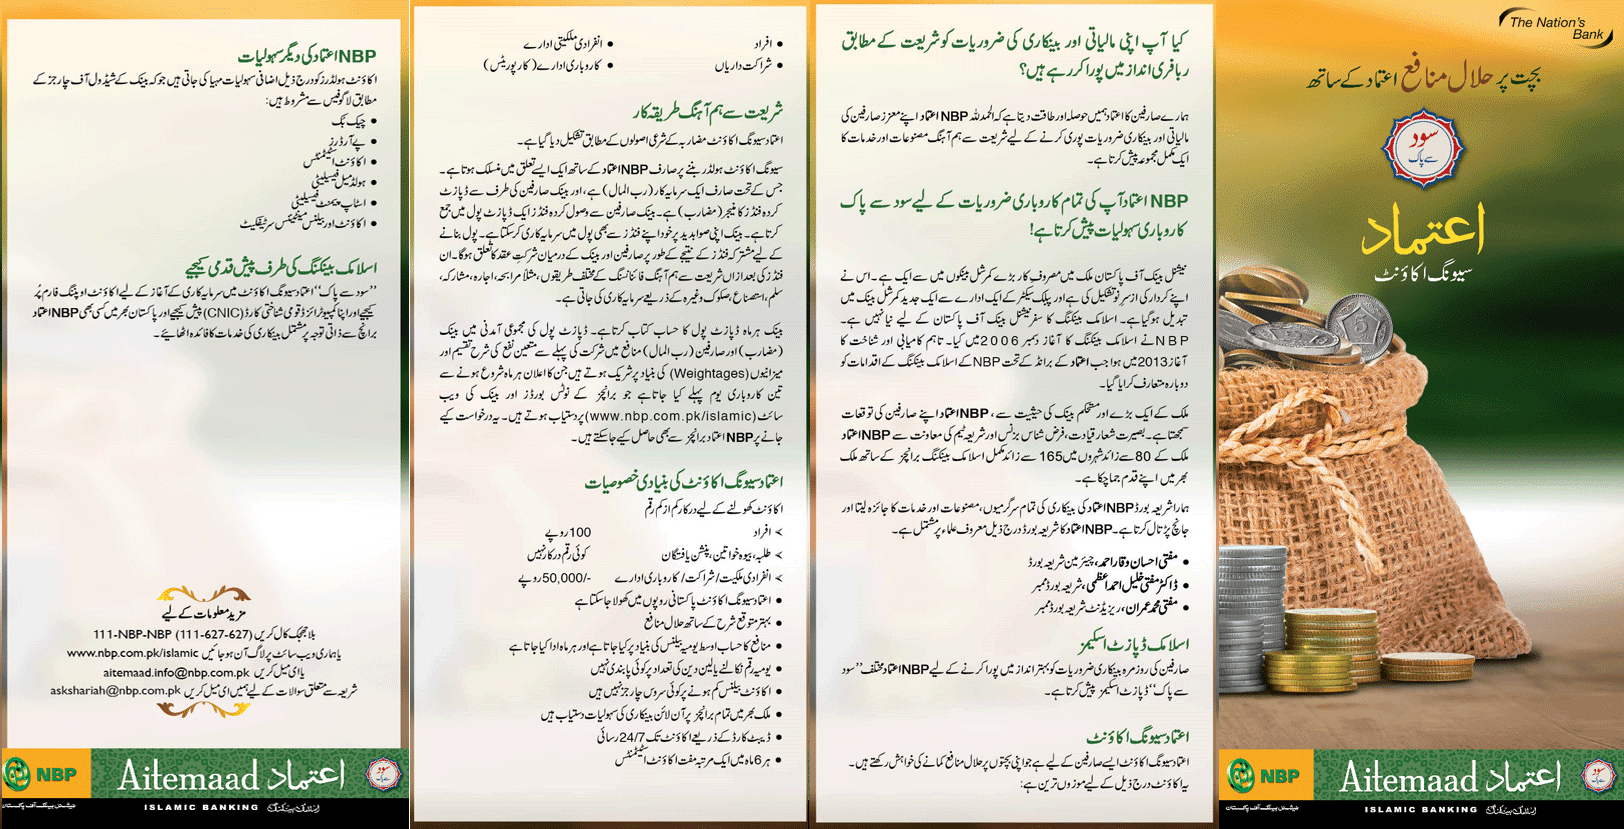 The Nation's
Bank
بچت پر حلال منافع اعتماد کے ساتھ
سود
سے پاک
اعتماد
سیونگ اکاؤنٹ
NBP
نیشنل بینک آف پاکستان
Aitemaad اعتماد
ISLAMIC BANKING اسلامک بینکنگ
سود
سے پاک
کیا آپ اپنی مالیاتی اور بینکاری کی ضروریات کو شریعت کے مطابق
ربا فری انداز میں پورا کر رہے ہیں؟
ہمارے صارفین کا اعتماد ہمیں حوصلہ اور طاقت دیتا ہے کہ الحمدللہ NBP اعتماد اپنے معزز صارفین کی
مالیاتی اور بینکاری ضروریات پوری کرنے کے لیے شریعت سے ہم آہنگ مصنوعات اور خدمات کا
ایک مکمل مجموعہ پیش کرتا ہے۔
NBP اعتماد آپ کی تمام کاروباری ضروریات کے لیے سود سے پاک
کاروباری سہولیات پیش کرتا ہے!
نیشنل بینک آف پاکستان ملک میں مصروف کار بڑے کمرشل بینکوں میں سے ایک ہے۔ اس نے
اپنے کردار کی از سر نو تشکیل کی ہے اور پبلک سیکٹر کے ایک ادارے سے ایک جدید کمرشل بینک میں
تبدیل ہو گیا ہے۔ اسلامک بینکنگ کا سفر نیشنل بینک آف پاکستان کے لیے نیا نہیں ہے۔
NBP نے اسلامک بینکنگ کا آغاز دسمبر 2006 میں کیا۔ تاہم کامیابی اور شناخت کا
آغاز 2013 میں ہوا جب اعتماد کے برانڈ کے تحت NBP کے اسلامک بینکنگ کے اقدامات کو
دوبارہ متعارف کرایا گیا۔
ملک کے ایک بڑے اور مستحکم بینک کی حیثیت سے، NBP اعتماد اپنے صارفین کی توقعات
سمجھتا ہے۔ بصیرت شعار قیادت، فرض شناس بزنس اور شریعہ ٹیم کی معاونت سے NBP اعتماد
ملک کے 80 سے زائد شہروں میں 165 سے زائد مکمل اسلامک بینکنگ برانچز کے ساتھ ملک
بھر میں اپنے قدم جما چکا ہے۔
ہمارا شریعہ بورڈ NBP اعتماد کی بینکاری کی تمام سرگرمیوں، مصنوعات اور خدمات کا جائزہ لیتا اور
جانچ پڑتال کرتا ہے۔ NBP اعتماد کا شریعہ بورڈ درج ذیل معروف علماء پر مشتمل ہے۔
• مفتی احسان وقار احمد، چیئرمین شریعہ بورڈ
• ڈاکٹر مفتی خلیل احمد اعظمی، شریعہ بورڈ ممبر
• مفتی محمد عمران، ریزیڈنٹ شریعہ بورڈ ممبر
اسلامک ڈپازٹ اسکیمز
صارفین کی روز مرہ بینکاری ضروریات کو بہتر انداز میں پورا کرنے کے لیے NBP اعتماد مختلف ”سود
سے پاک“ ڈپازٹ اسکیمز پیش کرتا ہے۔
اعتماد سیونگ اکاؤنٹ
اعتماد سیونگ اکاؤنٹ ایسے صارفین کے لیے ہے جو اپنی بچتوں پر حلال منافع کمانے کی خواہش رکھتے ہیں۔
یہ اکاؤنٹ درج ذیل کے لیے موزوں ترین ہے:
• افراد • انفرادی ملکیتی ادارے
• شراکت داریاں • کاروباری ادارے (کارپوریٹس)
شریعت سے ہم آہنگ طریقہ کار
اعتماد سیونگ اکاؤنٹ مضاربہ کے شرعی اصولوں کے مطابق تشکیل دیا گیا ہے۔
سیونگ اکاؤنٹ ہولڈر بننے پر صارف NBP اعتماد کے ساتھ ایک ایسے تعلق میں منسلک ہوتا ہے۔
جس کے تحت صارف ایک سرمایہ کار (رب المال) ہے، اور بینک صارفین کی طرف سے ڈپازٹ
کردہ فنڈز کا منیجر (مضارب) ہے۔ بینک صارفین سے وصول کردہ فنڈز ایک ڈپازٹ پول میں جمع
کرتا ہے۔ بینک اپنی صوابدید پر خود اپنے فنڈز سے بھی پول میں سرمایہ کاری کر سکتا ہے۔ پول بنانے
کے لیے مشترکہ فنڈز کے نتیجے کے طور پر صارفین اور بینک کے درمیان شرکت عقد کا تعلق ہوگا۔ ان
فنڈز کی بعد ازاں شریعت سے ہم آہنگ فائنانسنگ کے مختلف طریقوں، مثلاً مرابحہ، اجارہ، مشارکہ،
سلم، استصناع، صکوک وغیرہ کے ذریعے سرمایہ کاری کی جاتی ہے۔
بینک ہر ماہ ڈپازٹ پول کا حساب کتاب کرتا ہے۔ ڈپازٹ پول کی مجموعی آمدنی میں بینک
(مضارب) اور صارفین (رب المال) منافع میں شرکت کی پہلے سے متعین نفع کی شرح تقسیم اور
میزانیوں (Weightages) کی بنیاد پر شریک ہوتے ہیں جن کا اعلان ہر ماہ شروع ہونے سے
تین کاروباری یوم پہلے کیا جاتا ہے جو برانچز کے نوٹس بورڈز اور بینک کی ویب
سائٹ (www.nbp.com.pk/islamic) پر دستیاب ہوتے ہیں۔ یہ درخواست کیے
جانے پر NBP اعتماد برانچز سے بھی حاصل کیے جا سکتے ہیں۔
اعتماد سیونگ اکاؤنٹ کی بنیادی خصوصیات
اکاؤنٹ کھولنے کے لیے درکار کم از کم رقم
> افراد 100 روپے
> طلبہ، بیوہ خواتین، پنشن یافتگان کوئی رقم درکار نہیں
> انفرادی ملکیت/ شراکت/ کاروباری ادارے 50,000/- روپے
• اعتماد سیونگ اکاؤنٹ پاکستانی روپوں میں کھولا جا سکتا ہے
• بہتر متوقع شرح کے ساتھ حلال منافع
• منافع کا حساب اوسط یومیہ بیلنس کی بنیاد پر کیا جاتا ہے اور ہر ماہ ادا کیا جاتا ہے
• یومیہ رقم نکالنے یا لین دین کی تعداد پر کوئی پابندی نہیں
• اکاؤنٹ بیلنس کم ہونے پر کوئی سروس چارجز نہیں ہیں
• ملک بھر میں تمام برانچز پر آن لائن بینکاری کی سہولیات دستیاب ہیں
• ڈیبٹ کارڈ کے ذریعے اکاؤنٹ تک 24/7 رسائی
• ہر 6 ماہ میں ایک مرتبہ مفت اکاؤنٹ اسٹیٹمنٹس
NBP اعتماد کی دیگر سہولیات
اکاؤنٹ ہولڈرز کو درج ذیل اضافی سہولیات مہیا کی جاتی ہیں جو کہ بینک کے شیڈول آف چارجز کے
مطابق لاگو فیس سے مشروط ہیں:
• چیک بک
• پے آرڈرز
• اکاؤنٹ اسٹیٹمنٹس
• ہولڈ میل فیسیلیٹی
• اسٹاپ پیمنٹ فیسیلیٹی
• اکاؤنٹ اور بیلنس مینٹیننس سرٹیفکیٹ
اسلامک بینکنگ کی طرف پیش قدمی کیجیے
”سود سے پاک“ اعتماد سیونگ اکاؤنٹ میں سرمایہ کاری کے آغاز کے لیے اکاؤنٹ اوپننگ فارم پُر
کیجیے اور اپنا کمپیوٹرائزڈ قومی شناختی کارڈ (CNIC) پیش کیجیے اور پاکستان بھر میں کسی بھی NBP اعتماد
برانچ سے ذاتی توجہ پر مشتمل بینکاری کی خدمات کا فائدہ اٹھائیے۔
مزید معلومات کے لیے
بلا جھجک کال کریں 111-NBP-NBP (111-627-627)
یا ہماری ویب سائٹ پر لاگ آن ہو جائیں www.nbp.com.pk/islamic
یا ای میل کریں aitemaad.info@nbp.com.pk
شریعہ سے متعلق سوالات کے لیے ہمیں ای میل کریں askshariah@nbp.com.pk
NBP
نیشنل بینک آف پاکستان
Aitemaad اعتماد
ISLAMIC BANKING اسلامک بینکنگ
سود
سے پاک